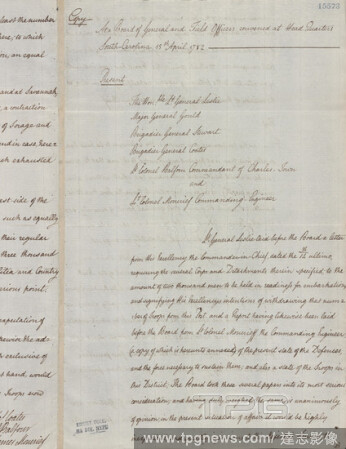 10535
Copy
At a Board of General and Field Officers convened at Head Quarters
South Carolina 15th April 1782
Present
The Honble Lt General Leslie
Major General Gould
Brigadier General Stewart
Brigadier General Coates
Lt Colonel Balfour Commandant of Charles Town
and
Lt Colonel Moncrief Commanding Engineer
Lt General Leslie laid before the Board a letter
from his Excellency the Commander in Chief dated the
requiring the several Corps and Detachments therein specified to the
amount of two thousand men to be held in readiness for embarkation
and signifying his Excellency's intentions of withdrawing that number
of Troops from this Post and a Report having likewise been laid
before the Board from Lt Colonel Moncrief the Commanding Engineer
(a copy of which is hereunto annexed) of the present state of the Defences
and the force necessary to sustain them, and also a state of the Troops in
this District; The Board took these several papers into its most serious
consideration, and having duly weighed the same is unanimously
of opinion in the present situation of affairs it would be highly
less the number
here, to which
on, an equal
and at Savannah
a contraction
of Forage and
and in case
exhausted
west side of the
such as equally
their regular
three thousand
Militia and Country
various point.
expectation of
exclusive of
hand, would
Troops
Coates
Balfour
James Moncrief
www.tpgnews.com
TPG
達志影像